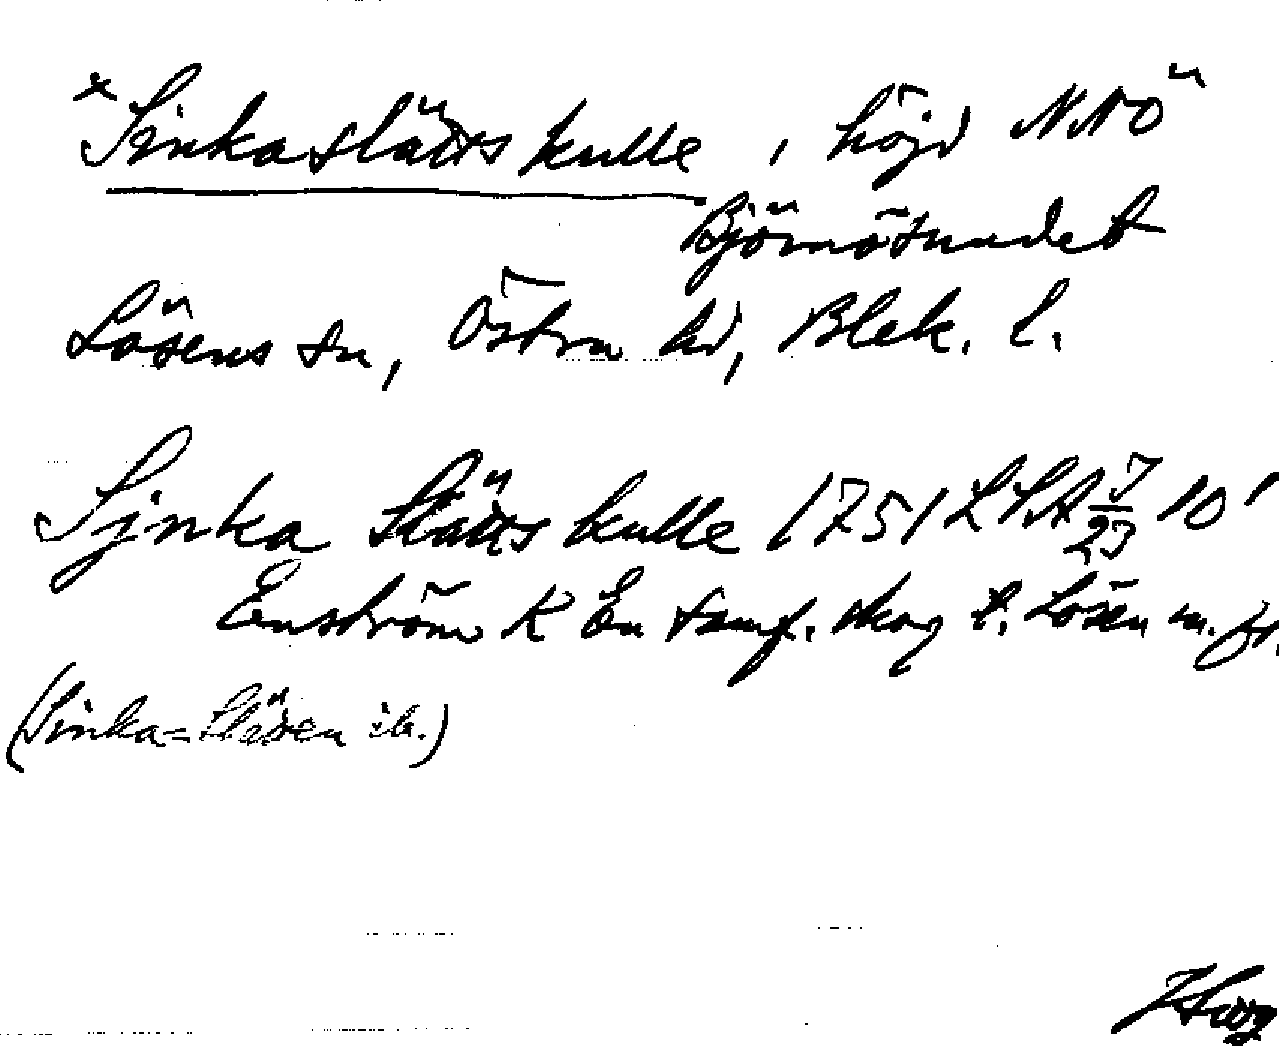 * Sinkaslättskulle, höjd NNÖ
Björnösundet
Lösens sn, Östra hd, Blek. l.
Sjnka Slätts kulle 1751 LSA J/23 10¹
Enström K En samf. skog t. Lösen m. fl.
(Sinka=Släten ib.)